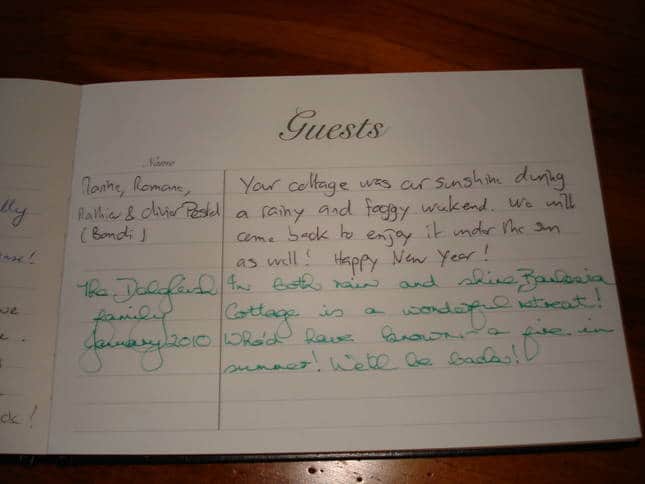 Guests
Name
Marine, Romane,
Mathieu & Olivier Postel
(Bondi)
Your cottage was our sunshine during
a rainy and foggy weekend. We will
come back to enjoy it under the sun
as well! Happy New Year!
The Dalgleish
family
January 2010
In both rain and shine
Cottage is a wonderful retreat!
Who'd have known - a fire in
summer! We'll be back!
lly
e.
ck!